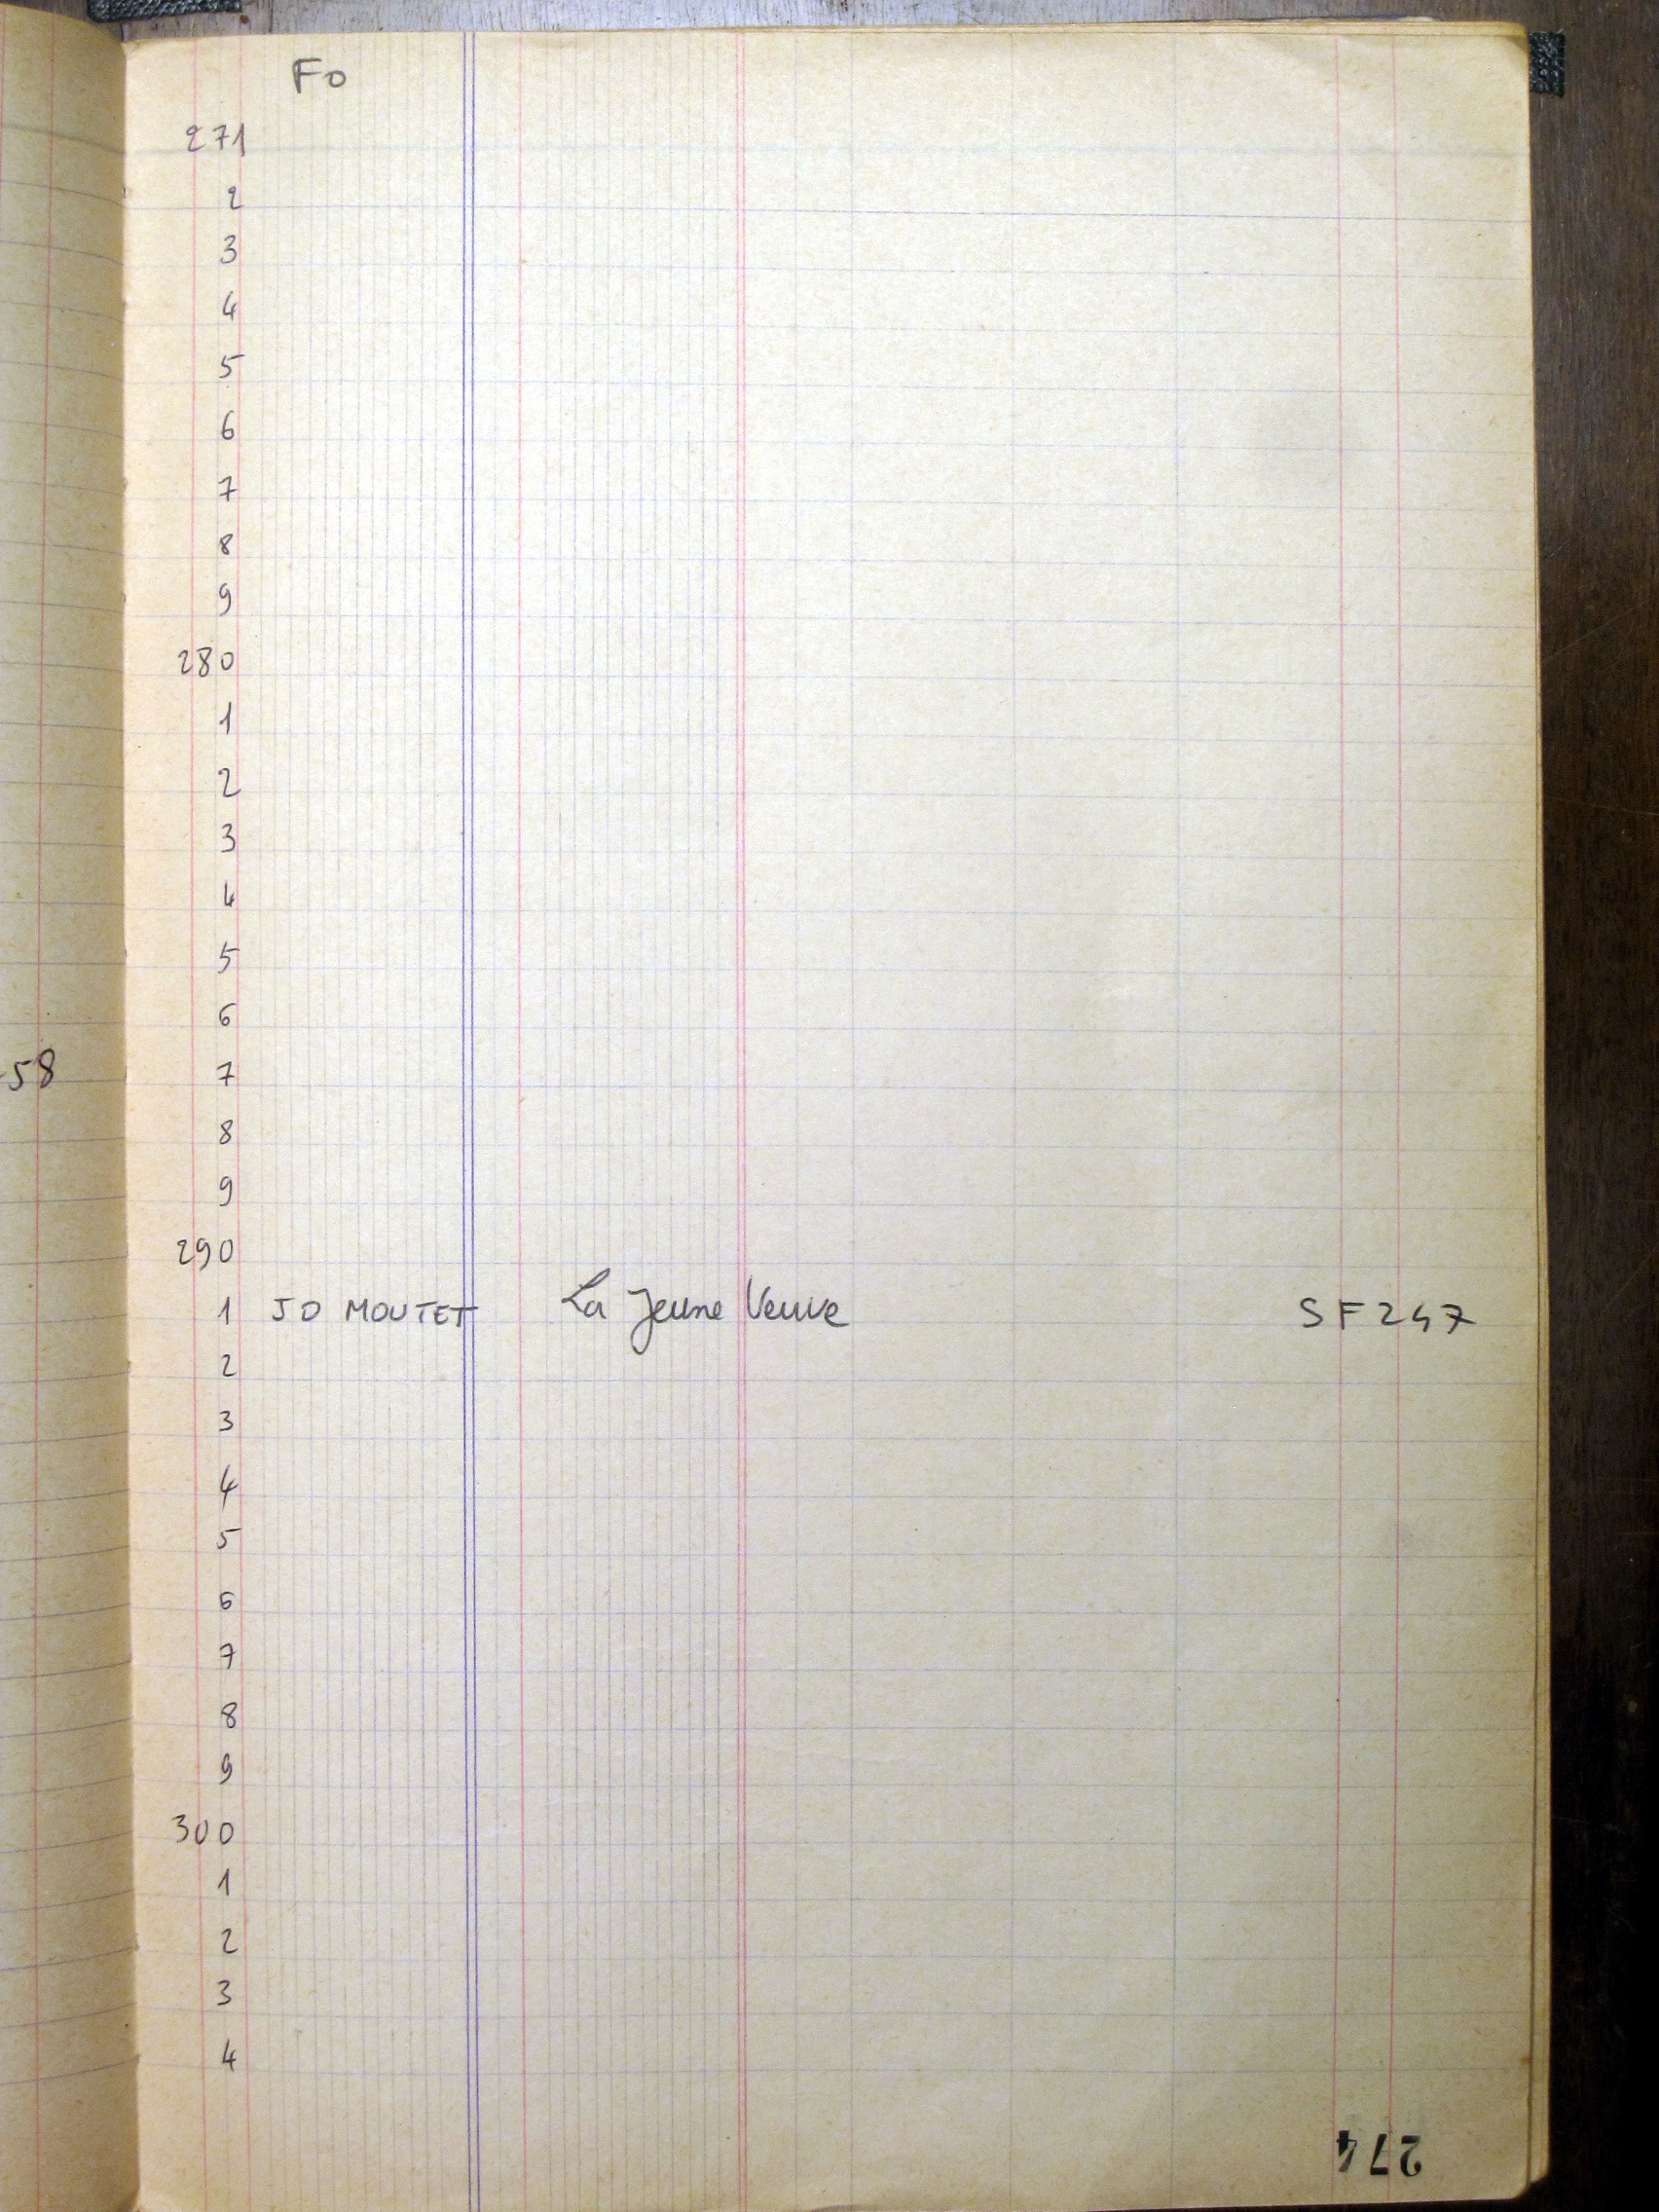 Fo
271
2
3
4
5
6
7
8
9
280
1
2
3
4
5
6
58
7
8
9
290
1 JO MOUTET La Jeune Veuve SF247
2
3
4
5
6
7
8
9
300
1
2
3
4
274